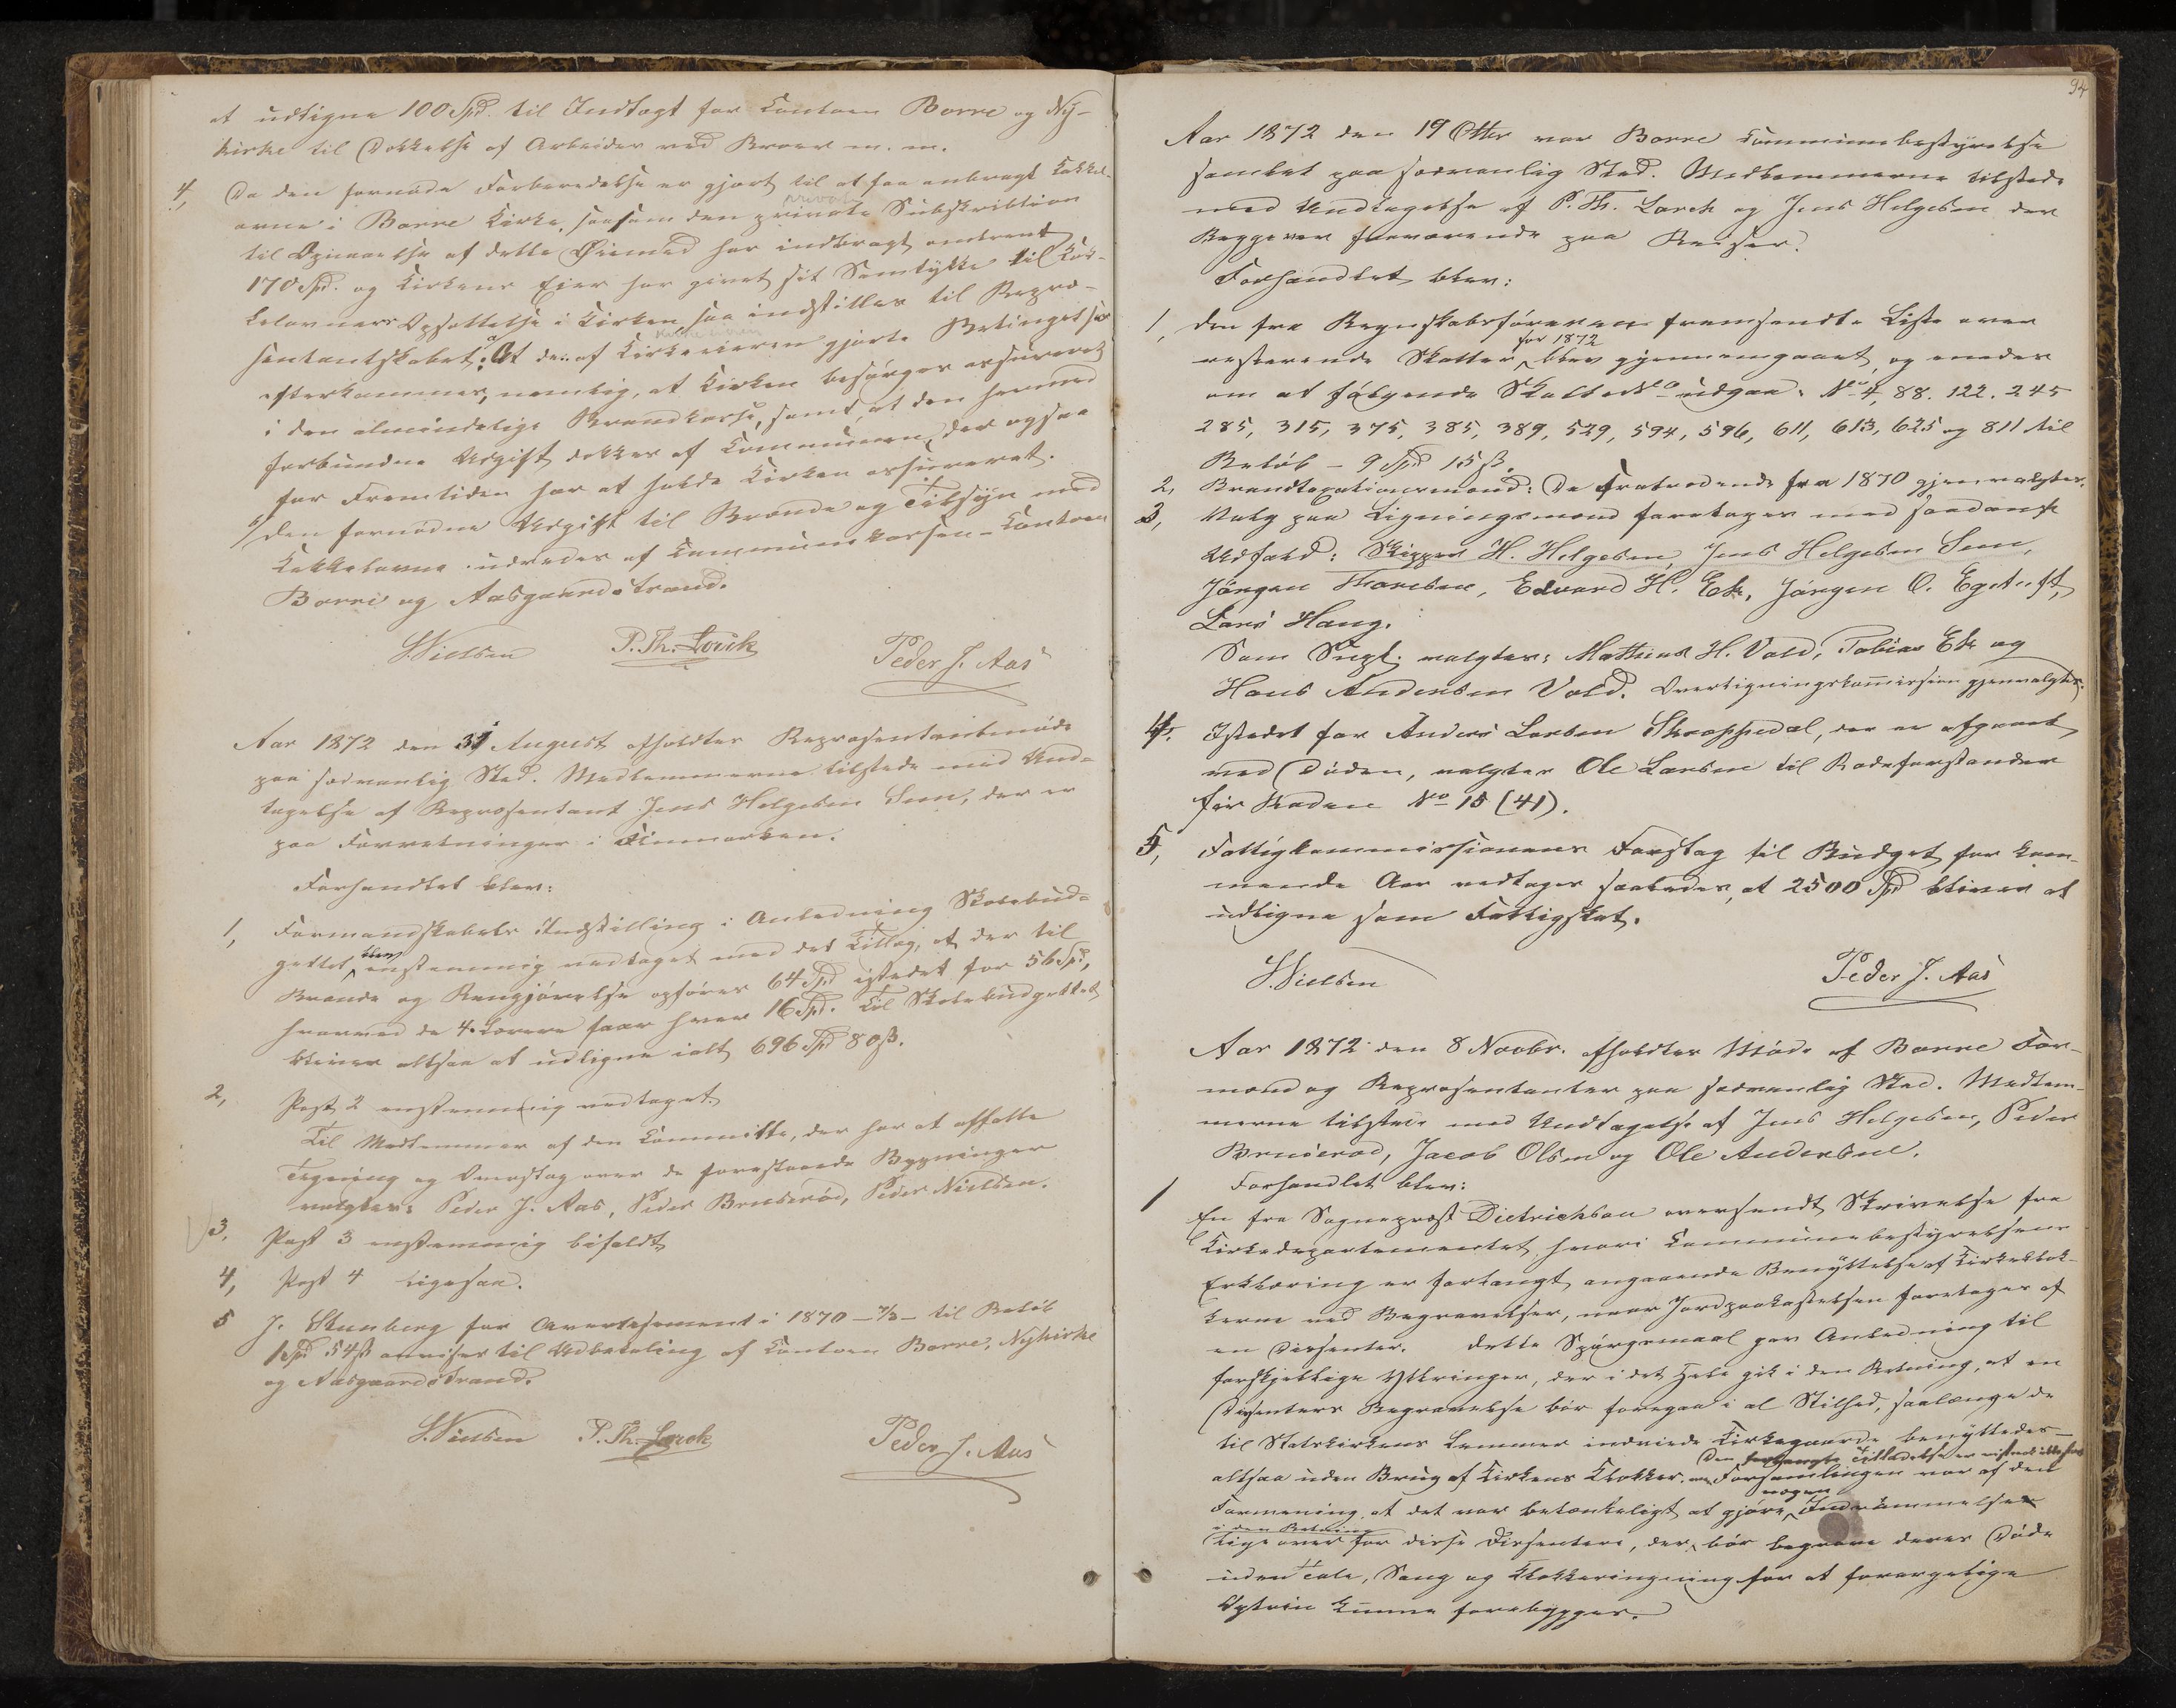 at udligne 100 Spd. til Indtægt for Kontoen Borre og Ny-
kirke til Dækkelse af Arbeider ved Broer m. m.
4, Da den fornødne Forberedelse er gjort til at faa anbragt Kakkel-
ovne i Borre Kirke, saasom den private Subskribtion
private
til Opnaaelse af dette Øiemed har indbragt omtrent
170 Spd. og Kirkens Eier har givet sit Samtykke til Kak-
kelovnens Opsættelse i Kirken saa indstilles til Repræ-
sentantskabet: a, At den af Kirkeeieren gjorte Betingelse
efterkommes, nemlig, at Kirken besørges assureret
i den almindelige Brandkasse, samt at den hermed
forbundne Udgift dækkes af Communen, der ogsaa
for Fremtiden har at holde Kirken assureret.
b, Den fornødne Udgift til Brænde og Tilsyn med
Kakkelovne udredes af Kommunekassen - Kontoen
Borre og Aasgaardstrand.
S. Nielsen P. Th. Lorck Peder J. Aas
Aar 1872 den 31 August afholdtes Repræsentantmøde
paa sædvanlig Sted. Medlemmerne tilstede med Und-
tagelse af Repræsentant Jens Helgesen Sem, der er
paa Forretninger i Finmarken.
Forhandlet blev:
1, Formandskabets Indstilling i Anledning Skolebud-
gettet blev enstemmig vedtaget med det Tillæg, at der til
Brænde og Rengjørelse opføres 64 Spd istedet for 56 Spd,
hvorved de 4 Lærere faar hver 16 Spd. Til Skolebudgettet
bliver altsaa at udligne ialt 696 Spd 80 ß.
2, Post 2 enstemmig vedtaget.
Til Medlemmer af den Committe, der har at affatte
Tegning og Overslag over de forestaaende Bygninger
valgtes: Peder J. Aas, Peder Bruserød, Peder Nielsen.
3, Post 3 enstemmig bifaldt
4, Post 4 ligesaa.
5 J. Stenberg for Avertisement i 1870 til Beløb
1 Spd 54 ß anvises til Udbetaling af Kontoen Borre, Nykirke
og Aasgaardstrand.
S. Nielsen P. Th. Lorck Peder J. Aas
94
Aar 1872 den 19 Otbr var Borre Communebestyrelse
samlet paa sædvanlig Sted. Medlemmerne tilstede
med Undtagelse af P. Th. Lorck og Jens Helgesen der
Begge var fraværende paa Reiser.
Forhandlet blev:
1, Den fra Regnskabsføreren fremsendte Liste over
for 1872
resterende Skatter blev gjennemgaaet, og enedes
om at følgende Skatter udgaa: No 4, 88. 122. 245
285, 315, 375, 385, 389, 529, 594, 596, 611, 613, 625 og 811 til
Beløb - 9 Spd 15 ß.
2, Brandtaxationsmænd: De fratrædende fra 1870 gjenvalgtes.
3, Valg paa Ligningsmænd foretages med saadant
Udfald: Skipper H. Helgesen, Jens Helgesen Sem,
Jørgen Thoresen, Edvard H. Ek, Jørgen O. Egetuft,
Lars Haug.
Som Supl. valgtes: Mathias H. Vold, Tobias Ek og
Hans Andersen Vold. Overligningskommission gjenvalgtes.
4. Istedet for Anders Larsen Skroppedal, der er afgaaet
ved Døden, valgtes Ole Larsen til Rodeforstander
for Roden No 15 (41).
5, Fattigkommissionens Forslag til Budget for kom-
mende Aar vedtages saaledes, at 2500 Spd bliver at
udligne som Fattigskat.
S. Nielsen Peder J. Aas
Aar 1872 den 8 Novbr. afholdtes Møde af Borre For-
mænd og Repræsentanter paa sædvanlig Sted. Medlem-
merne tilstede med Undtagelse af Jens Helgesen, Peder
Bruserød, Jacob Olsen og Ole Andersen.
Forhandlet blev:
1 En fra Sognepræst Dietrichson oversendt Skrivelse fra
Kirkedepartementet, hvori Kommunebestyrelsens
Erklæring er forlangt angaaende Benyttelse af Kirkeklok-
kerne ved Begravelser, naar Jordpaakastelsen foretages af
en Dissenter. Dette Spørgsmaal gav Anledning til
forskjellige Yttringer, der i det Hele gik i den Retning, at en
Dissenters Begravelse bør foregaa i al Stilhed, saalænge de
til Statskirkens Lemmer indviede Kirkegaarde benyttedes -
Den forlangte Tilladelse er
altsaa uden Brug af Kirkens Klokker. Forsamlingen var af den
nogen
Formening, at det var betænkeligt at gjøre Indrømmelser
i den Retning
lige over for disse Dissentere, der bør begrave deres Døde
uden Tale, Sang og Klokkeringning for at forargelige
Optrin kunne forebygges.